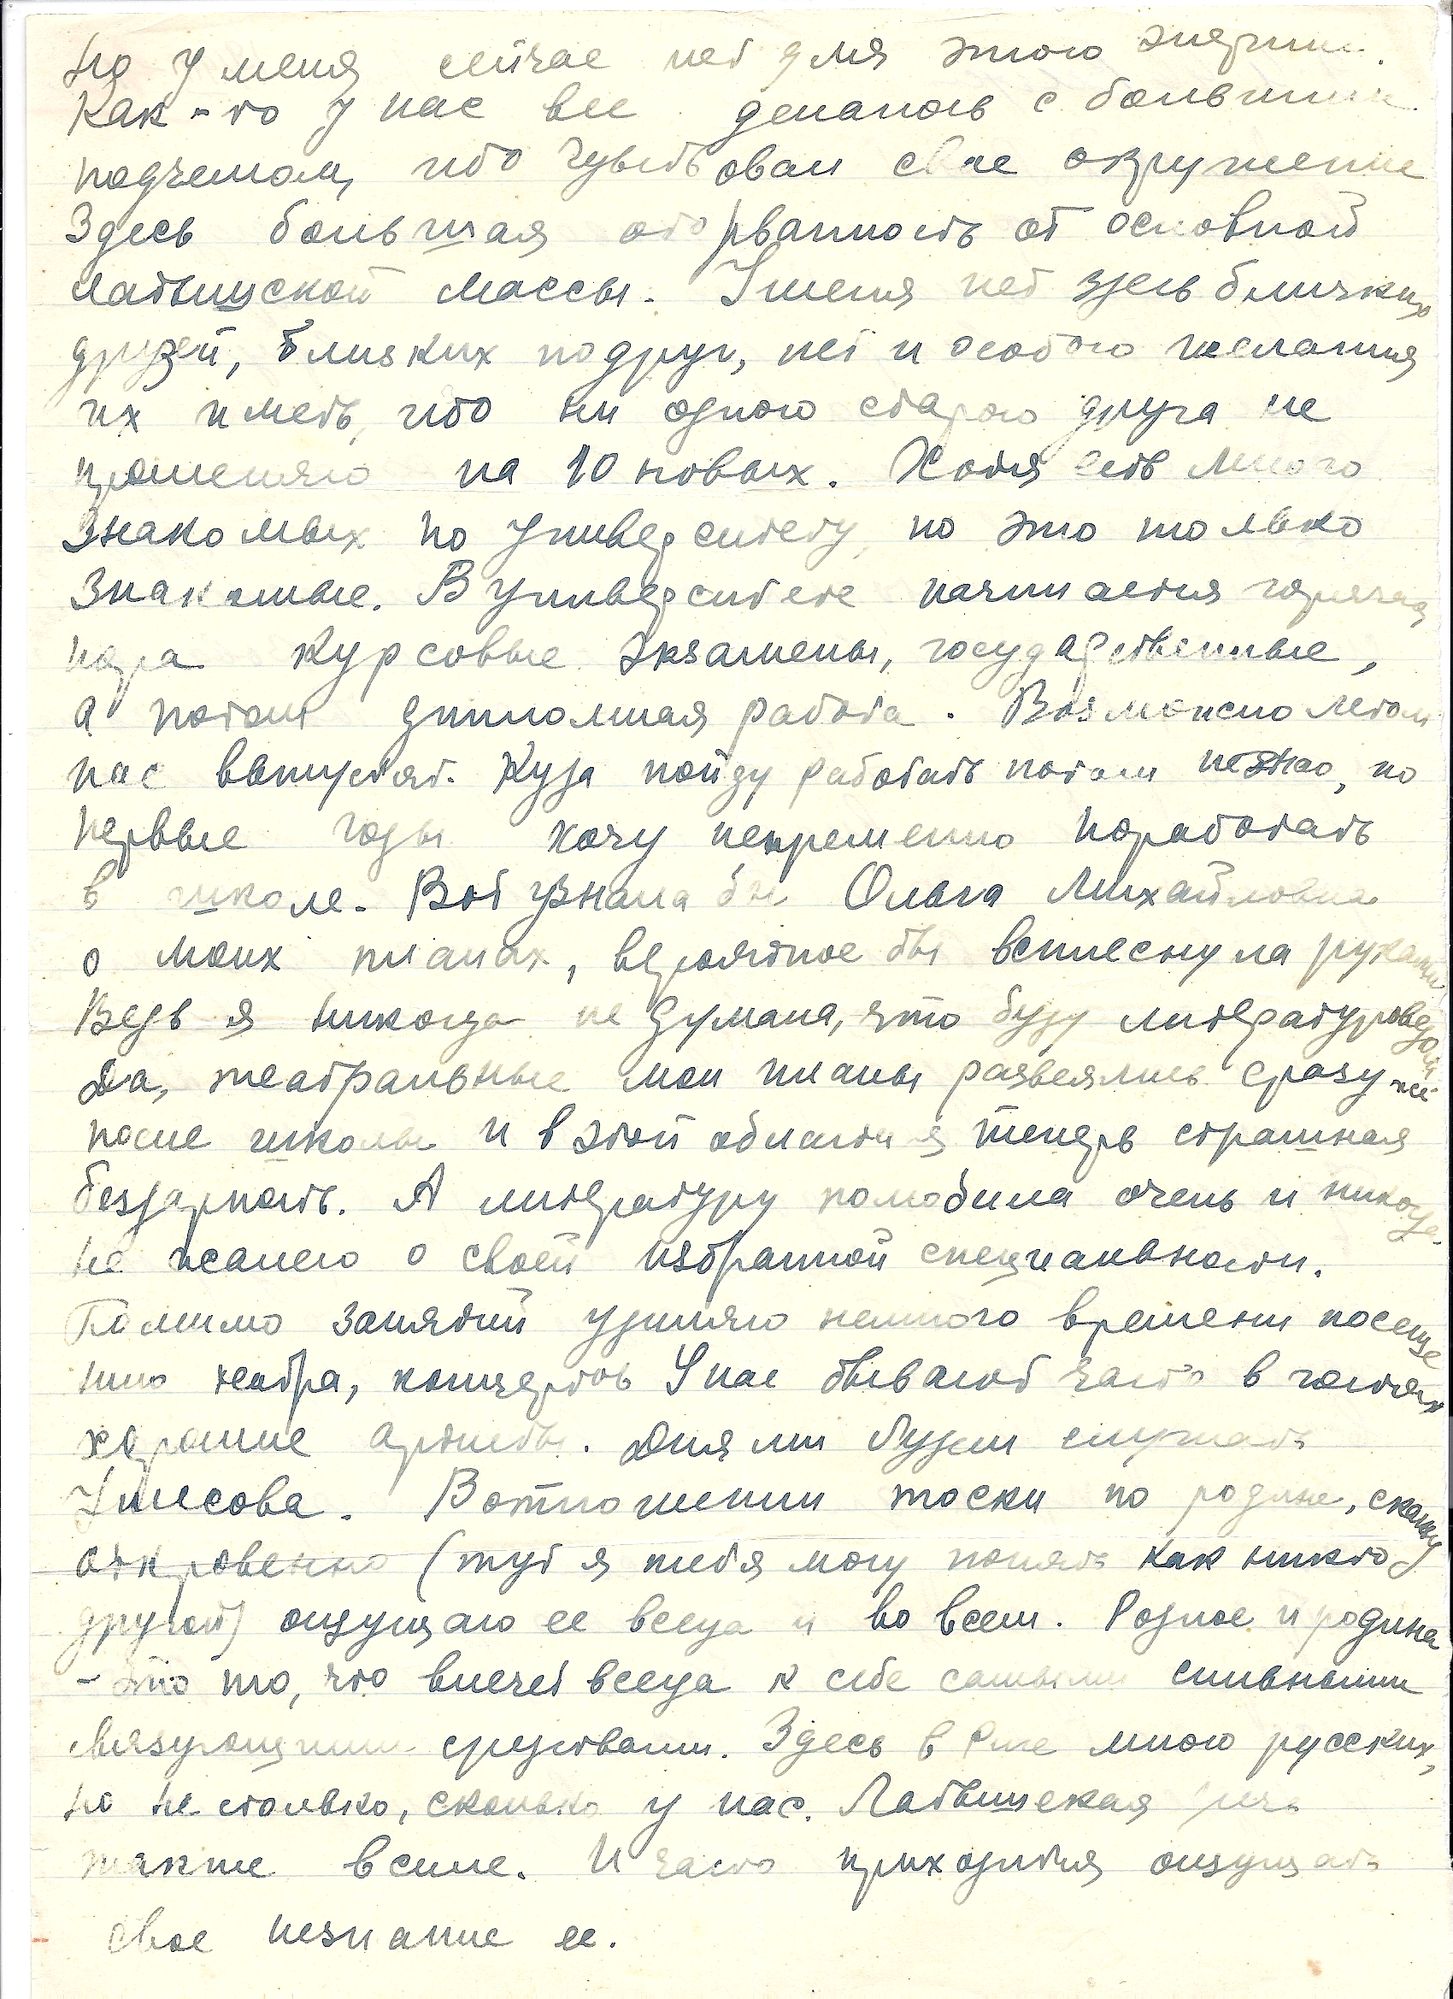 Но у меня сейчас нет для этого энергии.
Как-то у нас все делалось с большим
подъемом, ибо чувствовал свое окружение
Здесь большая оторванность от основной
латышской массы. У меня нет здесь близких
друзей, близких подруг, нет и особого желания
их иметь, ибо ни одного старого друга не
променяю на 10 новых. Хотя есть много
знакомых по Университету, но это только
знакомые. В Университете начинается горячая
пора Курсовые экзамены, государственные,
а потом дипломная работа. Возможно летом
нас выпустят. Куда пойду работать потом не знаю, но
первые годы хочу непременно поработать
в школе. Вот узнала бы Ольга Михайловна
о моих планах, вероятное бы всплеснула руками
Ведь я никогда не думала, что буду литературоведом
Да, театральные мои планы развеялись сразу же
после школы и в этой области я теперь страшная
бездарность. А литературу полюбила очень и никогда
не жалею о своей избранной специальности.
Помимо занятий уделяю немного времени посеще
нию театра, концертов У нас бывают часто в гостях
хорошие артисты. Днями будем слушать
Утесова. В отношении тоски по родине, скажу
откровенно (тут я тебя могу понять как никто
другой) ощущаю ее всегда и во всем. Родное и родина
- это то, что влечет всегда к себе самыми сильными
связующими средствами. Здесь в Риге много русских,
но не столько, сколько у нас. Латышская речь
также в силе. И часто приходится ощущать
свое незнание ее.